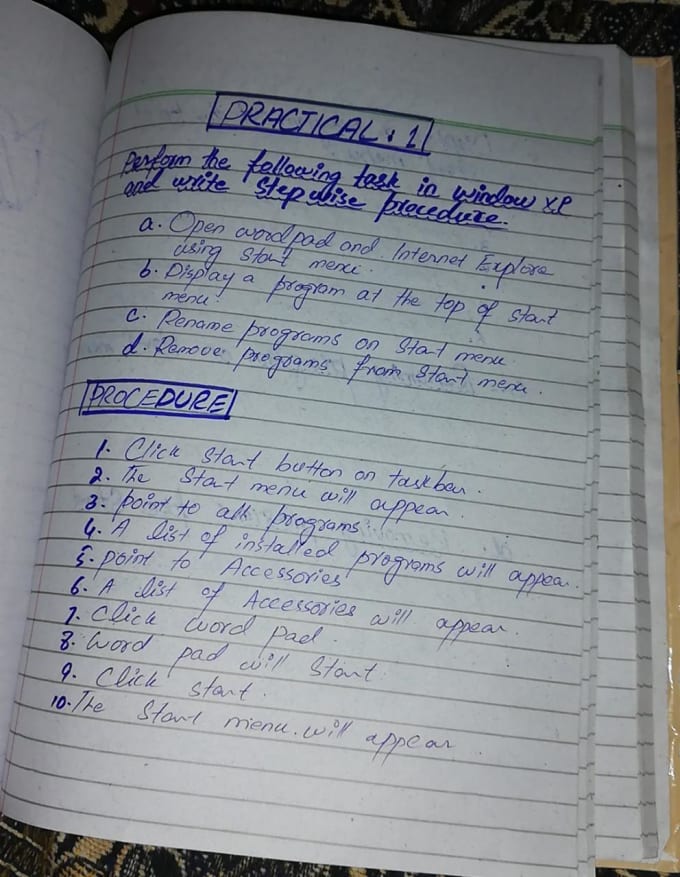 PRACTICAL. 1
Perform the following task in window XP
and write Stepwise procedure.
a. Open wordpad and Internet Explore
using Start menu.
b. Display a program at the top of start
menu.
c. Rename programs on Start menu.
d. Remove programs from Start menu.
PROCEDURE
1. Click Start button on taskbar.
2. The Start menu will appear.
3. point to all programs.
4. A list of installed programs will appear.
5. point to Accessories
6. A list of Accessories will appear.
7. Click word pad.
8. Word pad will Start.
9. Click start.
10. The Start menu. will appear